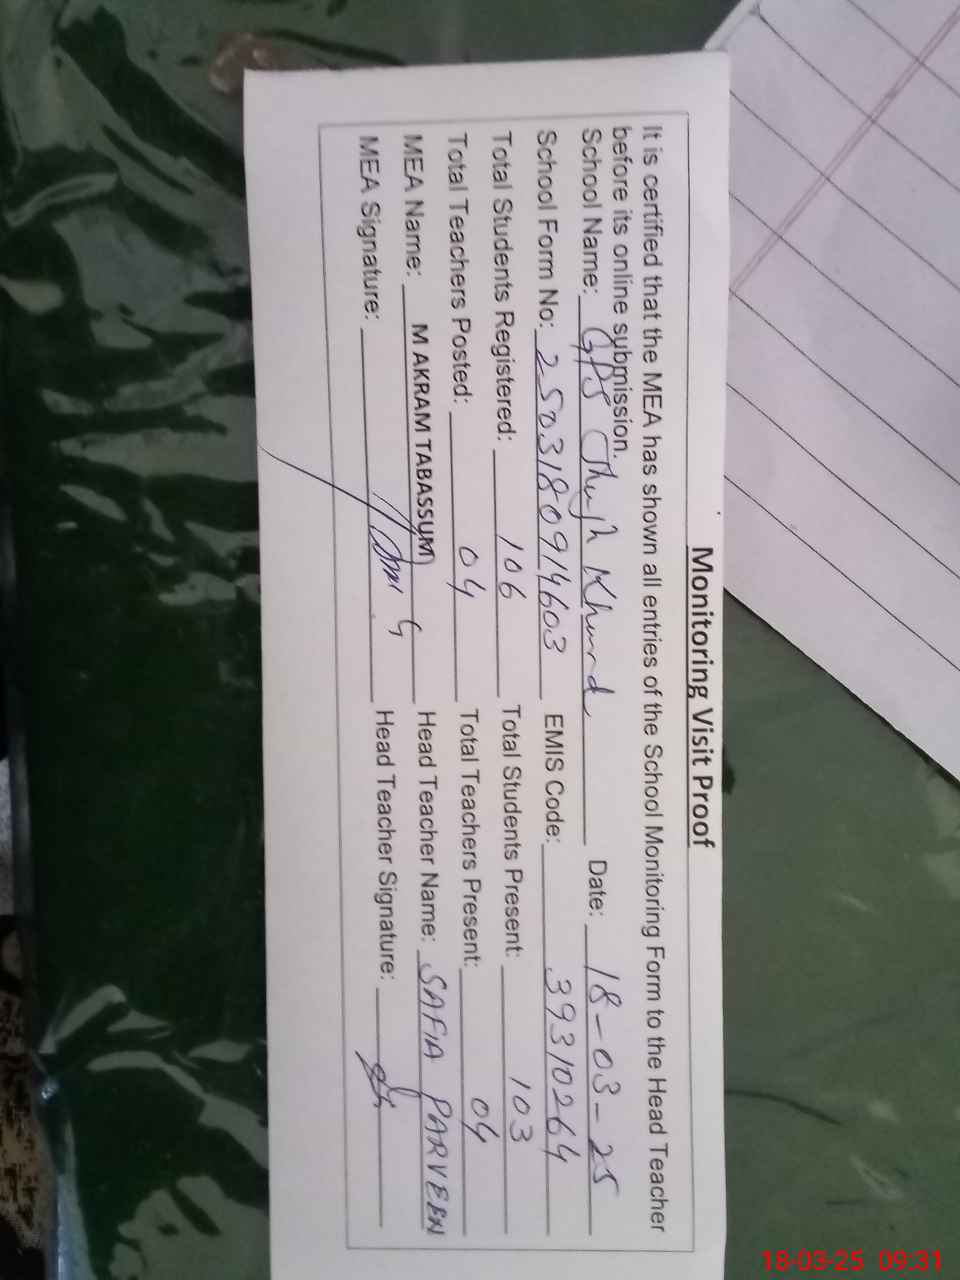 Monitoring Visit Proof
It is certified that the MEA has shown all entries of the School Monitoring Form to the Head Teacher
before its online submission.
School Name: GPS Khurd Date: 18-03-25
School Form No: 2503180914603 EMIS Code: 39310264
Total Students Registered: 106 Total Students Present: 103
Total Teachers Posted: 04 Total Teachers Present: 04
MEA Name: M AKRAM TABASSUM Head Teacher Name: SAFIA PARVEEN
MEA Signature: Head Teacher Signature:
18-03-25 09:31